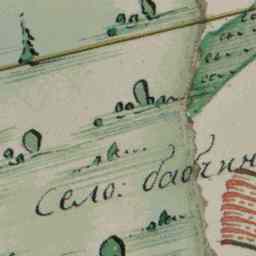 Село: бабчин